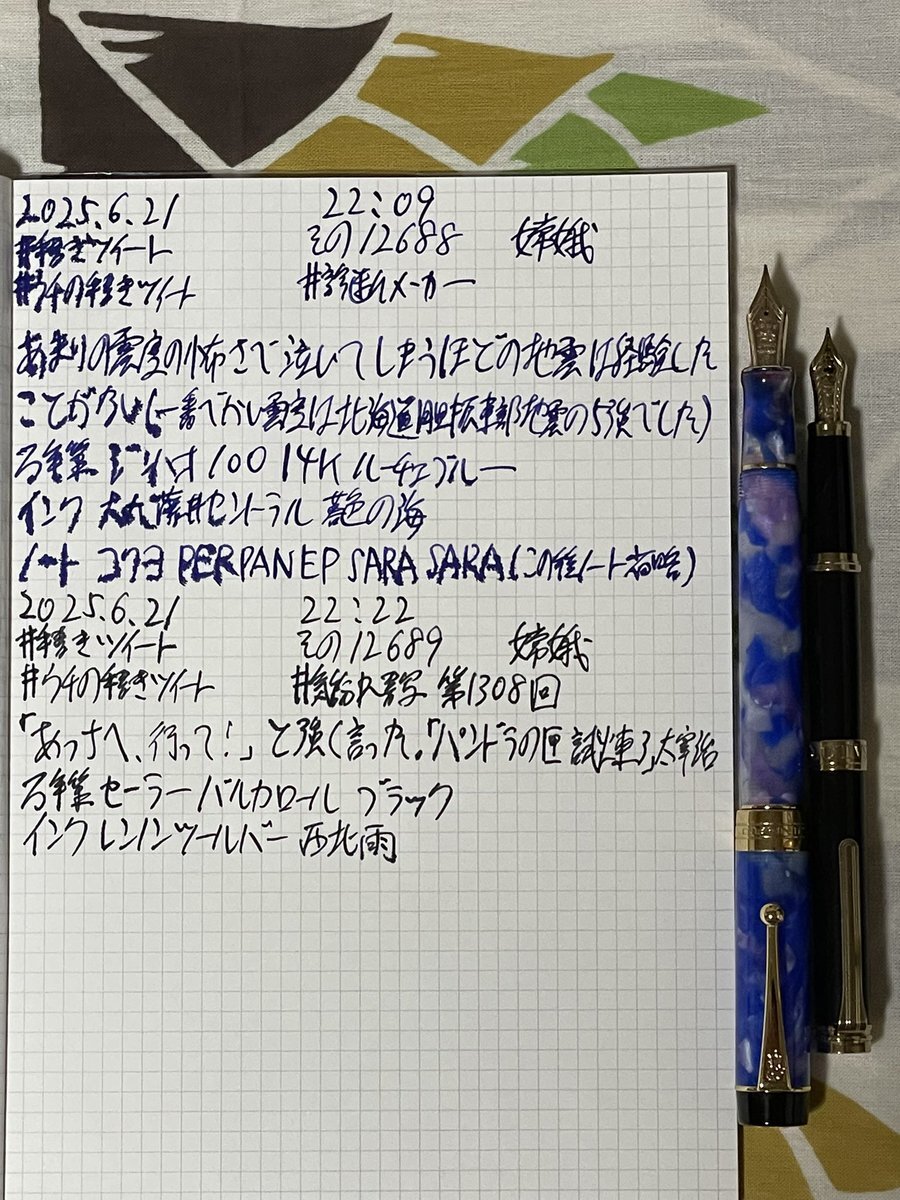 2025.6.21 22:09
#手書きツイート その12688 嫦娥
#ウチの手書きツイート #診断メーカー
あまりの震度の怖さで泣いてしまうほどの地震は経験した
ことがない(一番でかい震度は北海道胆振東部地震の5強でした)
万年筆 ジンハオ100 14K ルーチェブルー
インク 大丸藤井セントラル 蒼色の海
ノート コクヨ PERPANEP SARA SARA(この後ノート省略)
2025.6.21 22:22
#手書きツイート その12689 嫦娥
#ウチの手書きツイート 第1308回
「あっちへ、行って!」と強く言った。「パンドラの匣 試煉3」太宰治
万年筆 セーラー バルカロール ブラック
インク レンノンツールバー 西北雨